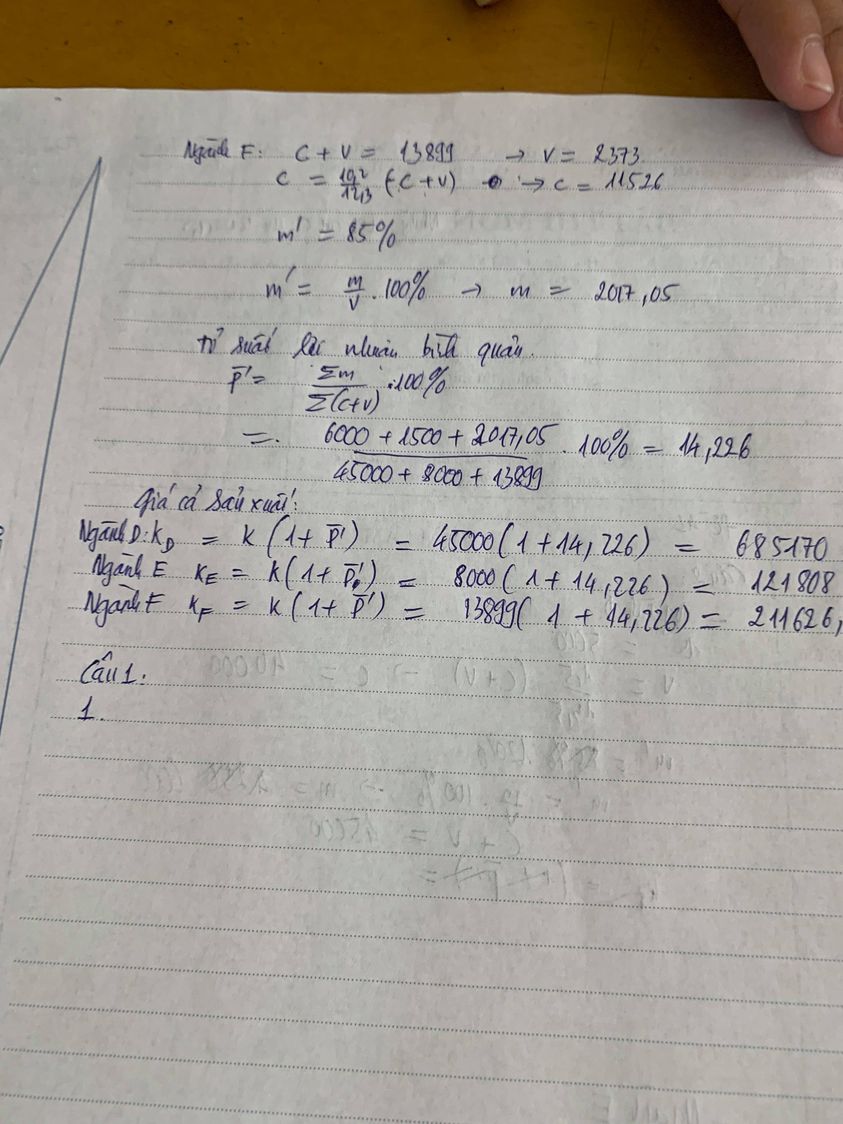 Ngành F: C + V = 13899 → V = 2373
C = 10,2/12,3 (C + V) → C = 11526
m' = 85%
m' = m/V . 100% → m = 2017,05
tỉ suất lợi nhuận bình quân.
p̄' = Σm/Σ(C+V) . 100%
= 6000 + 1500 + 2017,05 / 45000 + 8000 + 13899 . 100% = 14,226
Giá cả sản xuất:
Ngành D: K_D = K (1 + p̄') = 45000 (1 + 14,226) = 685170
Ngành E K_E = K (1 + p̄') = 8000 (1 + 14,226) = 121808
Ngành F K_F = K (1 + p̄') = 13899 (1 + 14,226) = 211626,
Câu 1.
1.